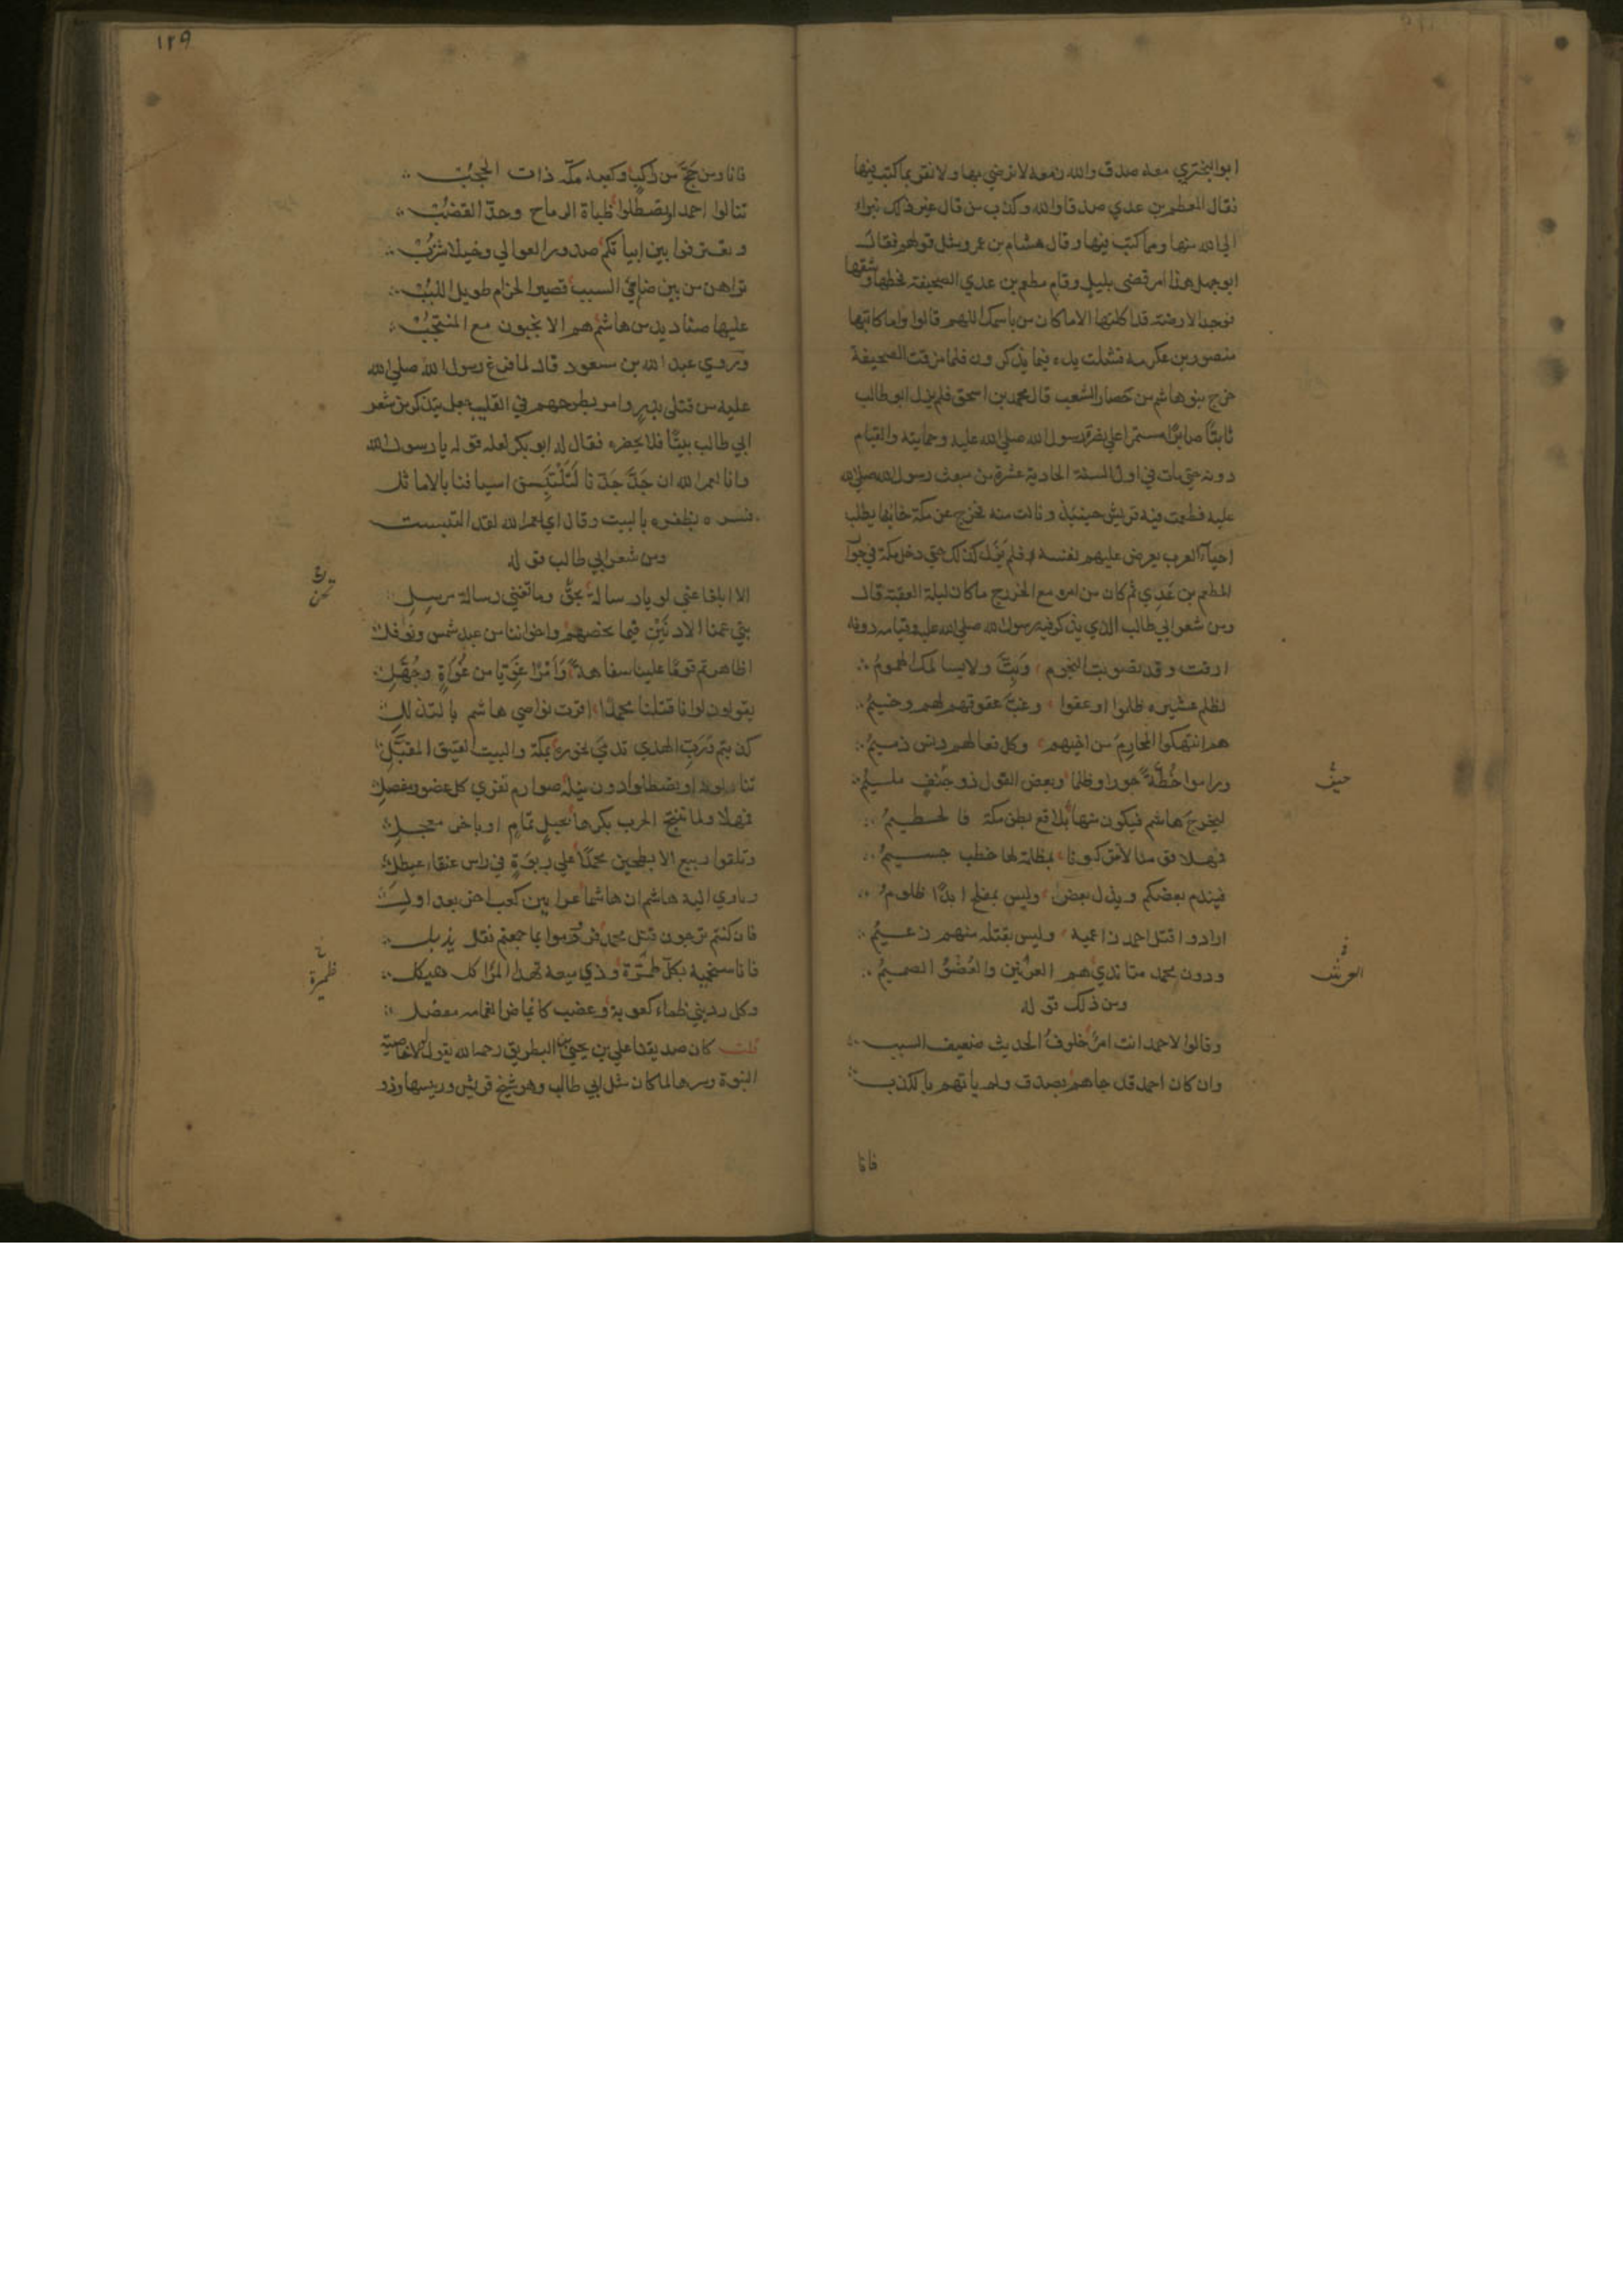 ابو البختري معه صدق والله زمعه لا نرضي بها ولا نقر بما كتب فيها
فقال المطعم بن عدي صدقا والله وكذب من قال غير ذلك نبراء
الي الله منها ومما كتب فيها وقال هشام بن عمرو مثل قولهم فقال
ابو جهل هذا امر قضي بليل وقام مطعم بن عدي الي الصحيفة فحطها وشقها
فوجد الارضه قد اكلتها الا ما كان من باسمك اللهم قالوا واما كاتبها
منصور بن عكرمه فشلت يده فيما يذكرون فلما مزقت الصحيفة
خرج بنو هاشم من حصار الشعب قال محمد بن اسحق فلم يزل ابو طالب
ثابتًا صابرًا مستمرا علي نصر رسول الله صلي الله عليه وحمايته والقيام
دونه حتي مات في اول السنة الحادية عشرة من مبعث رسول الله صلي الله
عليه فطمعت فيه قريش حينئذ ونالت منه فخرج عن مكة خائفا يطلب
احياء العرب يعرض عليهم نفسه فلم يزل كذلك حتي دخل مكة في جوار
المطعم بن عدي ثم كان من امره مع الخزرج ما كان ليلة العقبة قال
ومن شعر ابي طالب الذي يذكر فيه رسول الله صلي الله عليه وقيامه دونه
ارقت وقد تصوبت النجوم وبت ولا يسالمك الهموم
لظلم عشيره ظلموا وعقوا وغب عقوقهم لهم وخيم
هم انتهكوا المحارم من اخيهم وكل فعالهم دنس ذميم
وراموا خطة جورا وظلما وبعض القول ذو جنف مليم
حيف
ليخرج هاشم فيكون منها بلاقع بطن مكة فالحطيم
فمهلا قومنا لا تركبونا بمظلمة لها خطب جسيم
فيندم بعضكم ويذل بعض وليس بمفلح ابدًا ظلوم
ارادوا قتل احمد زاعميه وليس بقتله منهم زعيم
ودون محمد منا ندي هم العرنين والعضو الصميم
ومن ذلك قوله
وقالوا لاحمد انت امرء خلوف الحديث ضعيف السبب
وان كان احمد قد جاءهم بصدق ولم ياتهم بالكذب
فانا
١٢٩
فانا ومن حج من راكب وكعبه مكة ذات الحجب
تنالوا احمد او تصطلوا ظباة الرماح وحد القضب
وتعترفوا بين ابياتكم صدور العوالي وخيلا شزب
تراهن من بين ضافي السبيب قصير الحزام طويل اللبب
عليها صناديد من هاشم هم الانجبون مع المنتجب
وروي عبد الله بن مسعود قال لما فرغ رسول الله صلي الله
عليه من قتلي بدر وامر بطرحهم في القليب جعل يتذكر من شعر
ابي طالب بيتًا فلا يحضره فقال له ابو بكر لعله قوله يا رسول الله
وانا لعمر الله ان جد جدنا لتلتبسن اسيافنا بالاماثل
فسر بظفره بالبيت وقال اي لعمر الله لقد التبست
ومن شعر ابي طالب قوله
الا ابلغا عني لويا رسالة بحق وما تغني رسالة مرسل
بني عمنا الادنين فيما نخصهم واخواننا من عبد شمس ونوفل
اظاهرتم قومًا علينا سفاهة وامرًا غويا من غواة وجهل
يقولون لو انا قتلنا محمدًا اقرت نواصي هاشم بالتذلل
كذبتم ورب الهدي تدمي نحوره بمكة والبيت العتيق المقبل
تنالونه او تصطلوا دون نيله صوارم تفري كل عضو ومفصل
فمهلا ولما تنتج الحرب بكرها بخيل تمام او باخر معجل
وتلقوا ربيع الابطحين محمدًا علي ربوة في راس عنقاء عيطل
وتاوي اليه هاشم ان هاشما عرانين كعب اخر بعد اول
فان كنتم ترجون قتل محمد فروموا بما جمعتم نقل يذبل
فانا سنحميه بكل طمرة وذي ميعه نهد المراكل هيكل
وكل رديني ظماء كعوبه وعضب كايماض الغمامه مفصل
قلت كان صديقنا علي بن يحيي بن البطريق رحمه الله يقول لولا خاصية
النبوة وسرها لما كان مثل ابي طالب وهو شيخ قريش ورييسها وذو